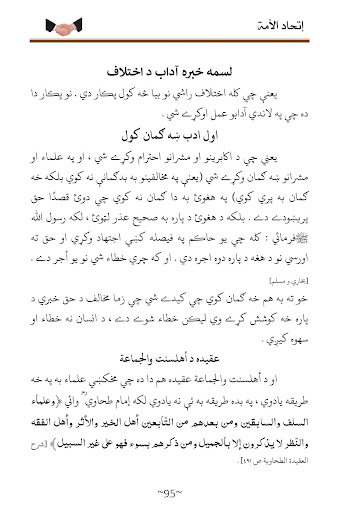 إتحاد الأمة
لسمه خبره آداب د اختلاف
يعني چي كله اختلاف راشي نو بيا څه كول پكار دي . نو پكار دا
ده چي په لاندي آدابو عمل اوكړے شي .
اول ادب ښه ګمان كول
يعني چي د اكابرينو او مشرانو احترام وكړے شي ، او په علماء او
مشرانو ښه ګمان وكړے شي (يعني په مخالفينو به بدګماني نه كوي بلكه خه
ګمان به پرې كوي) په هغوئ به دا ګمان نه كوي چي دوئ قصدًا حق
پريښودے دے . بلكه د هغوئ د پاره به صحيح عذر لټوئ ، لكه رسول الله
ﷺ فرمائي : كله چي يو حاكم په فيصله كښي اجتهاد وكړي او حق ته
اورسي نو د هغه د پاره دوه اجره دي . او كه چري خطاء شي نو يو أجر دے .
[بخاري و مسلم]
خو ته به هم خه ګمان كوي چي كيدے شي چي زما مخالف د حق خبري د
پاره خه كوشش كړے وي ليكن خطاء شوے دے ، د انسان نه خطاء او
سهوه كيږي .
عقيده د أهلسنت والجماعة
او د أهلسنت والجماعة عقيده هم دا ده چي مخكښي علماء به په خه
طريقه يادوي ، په بده طريقه به ئې نه يادوي لكه إمام طحاوي ؒ وائي ﴿وعلماء
السلف والسابقين ومن بعدهم من التّابعين أهل الخير والأثر وأهل الفقه
والنّظر لا يذكرون إلا بالجميل ومن ذكرهم بسوء فهو على غير السبيل﴾ [شرح
العقيدة الطحاوية ص ٤٩١] .
~95~